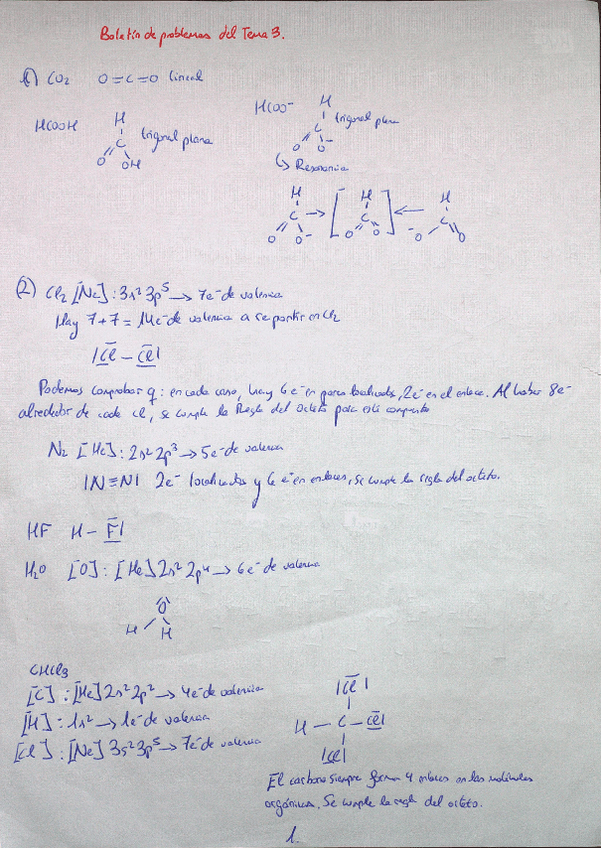 Boletín de problemas del Tema 3.
1) CO2 O=C=O lineal
HCOOH
H
C
O OH
trigonal plana
HCOO-
H
C
O O-
trigonal plana
↳ Resonancia
H H H
C → [ C ]- ← C
O O- O O -O O
2) Cl2 [Ne]: 3s2 3p5 → 7e- de valencia
Hay 7+7 = 14e- de valencia a repartir en Cl2
|Cl - Cl|
Podemos comprobar q: en cada caso, hay 6e- en pares localizados, 2e- en el enlace. Al haber 8e-
alrededor de cada Cl, se cumple la Regla del Octeto para este compuesto
N2 [He]: 2s2 2p3 → 5e- de valencia
|N≡N| 2e- localizados y 6e- en enlaces, se cumple la regla del octeto.
HF H - F|
H2O [O]: [He] 2s2 2p4 → 6e- de valencia
O
H H
CHCl3
[C]: [He] 2s2 2p2 → 4e- de valencia
[H]: 1s2 → 1e- de valencia
[Cl]: [Ne] 3s2 3p5 → 7e- de valencia
|Cl|
H - C - Cl|
|Cl|
El carbono siempre forma 4 enlaces en las moléculas
orgánicas. Se cumple la regla del octeto.
1.